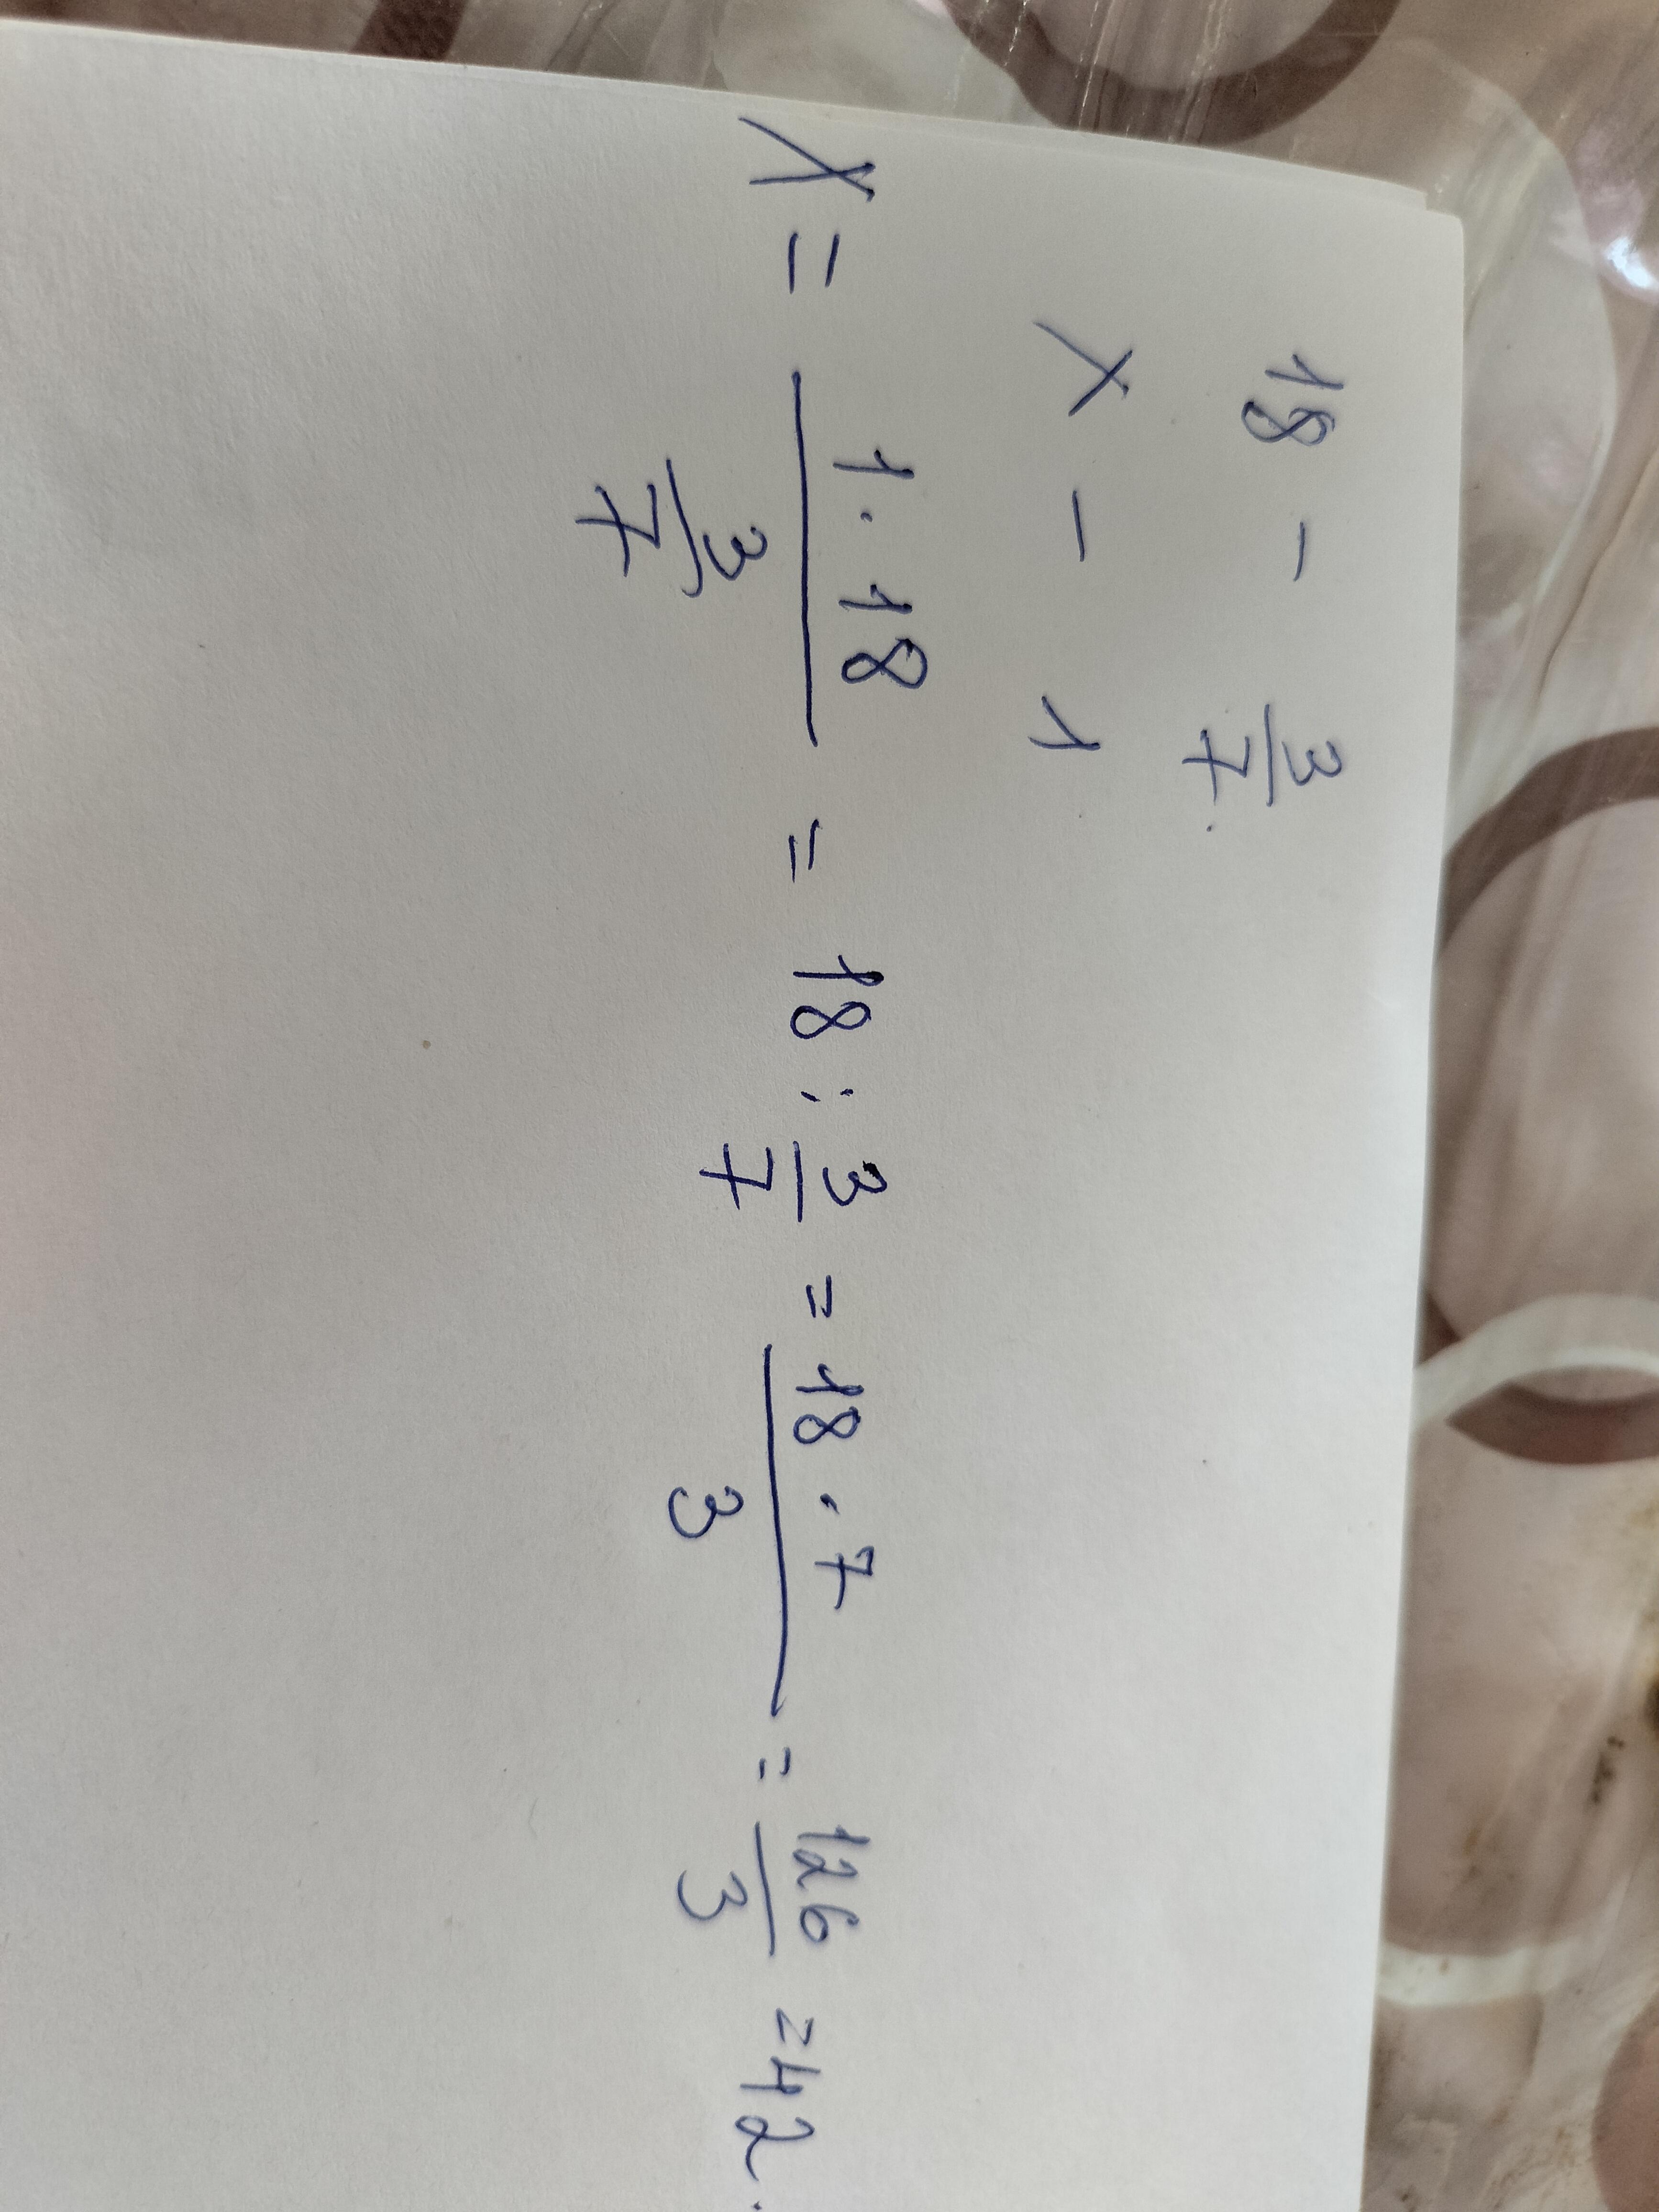 18 - 3/7.
x - 1
x = (1 · 18)/(3/7) = 18 : 3/7 = (18 · 7)/3 = 126/3 = 42.